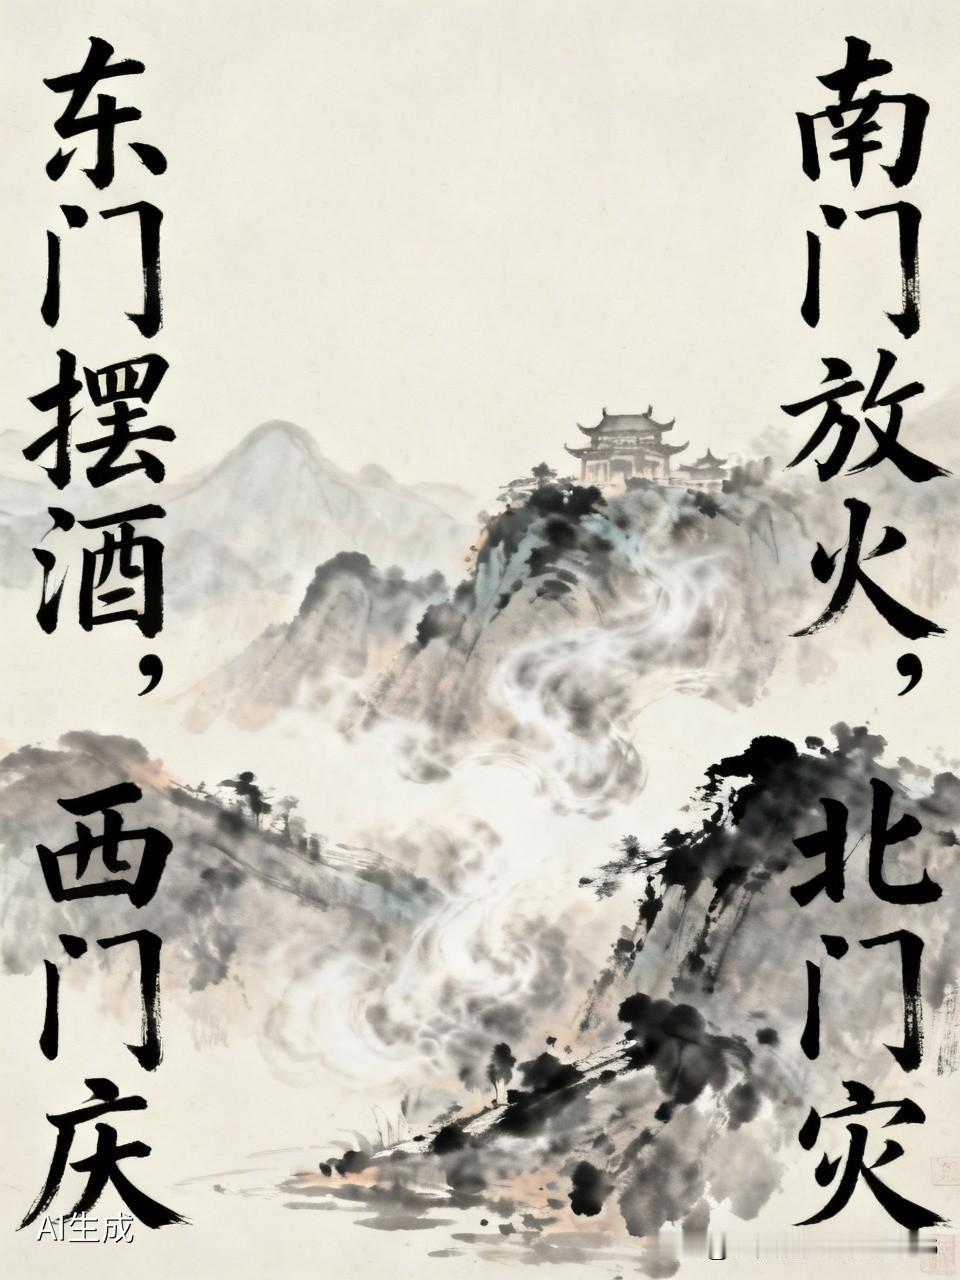 南门放火，北门灾
东门摆酒，西门庆
AI生成